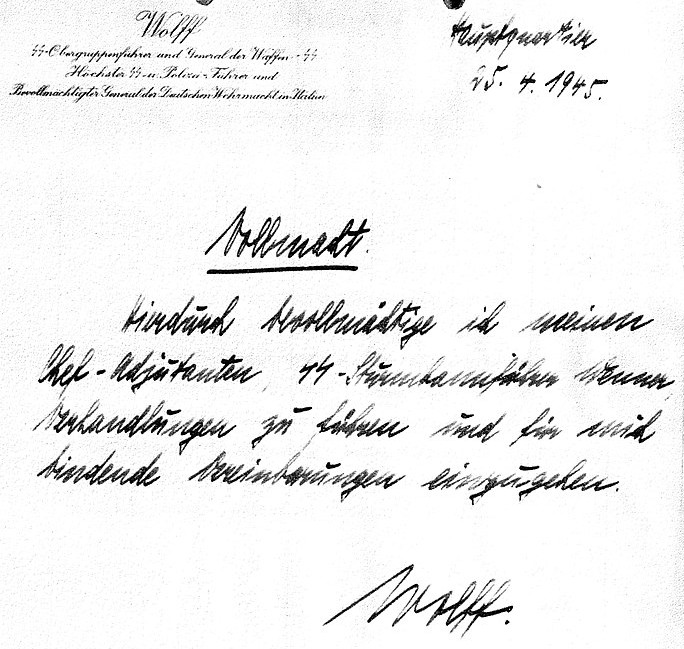 Wolff
SS-Obergruppenführer und General der Waffen-SS
Höchster SS- u. Polizei-Führer und
Bevollmächtigter General der Deutschen Wehrmacht in Italien
Hauptquartier
25. 4. 1945.
Vollmacht.
Hierdurch bevollmächtige ich meinen
Chef-Adjutanten, SS-Sturmbannführer Wenner,
Verhandlungen zu führen und für mich
bindende Vereinbarungen einzugehen.
Wolff.